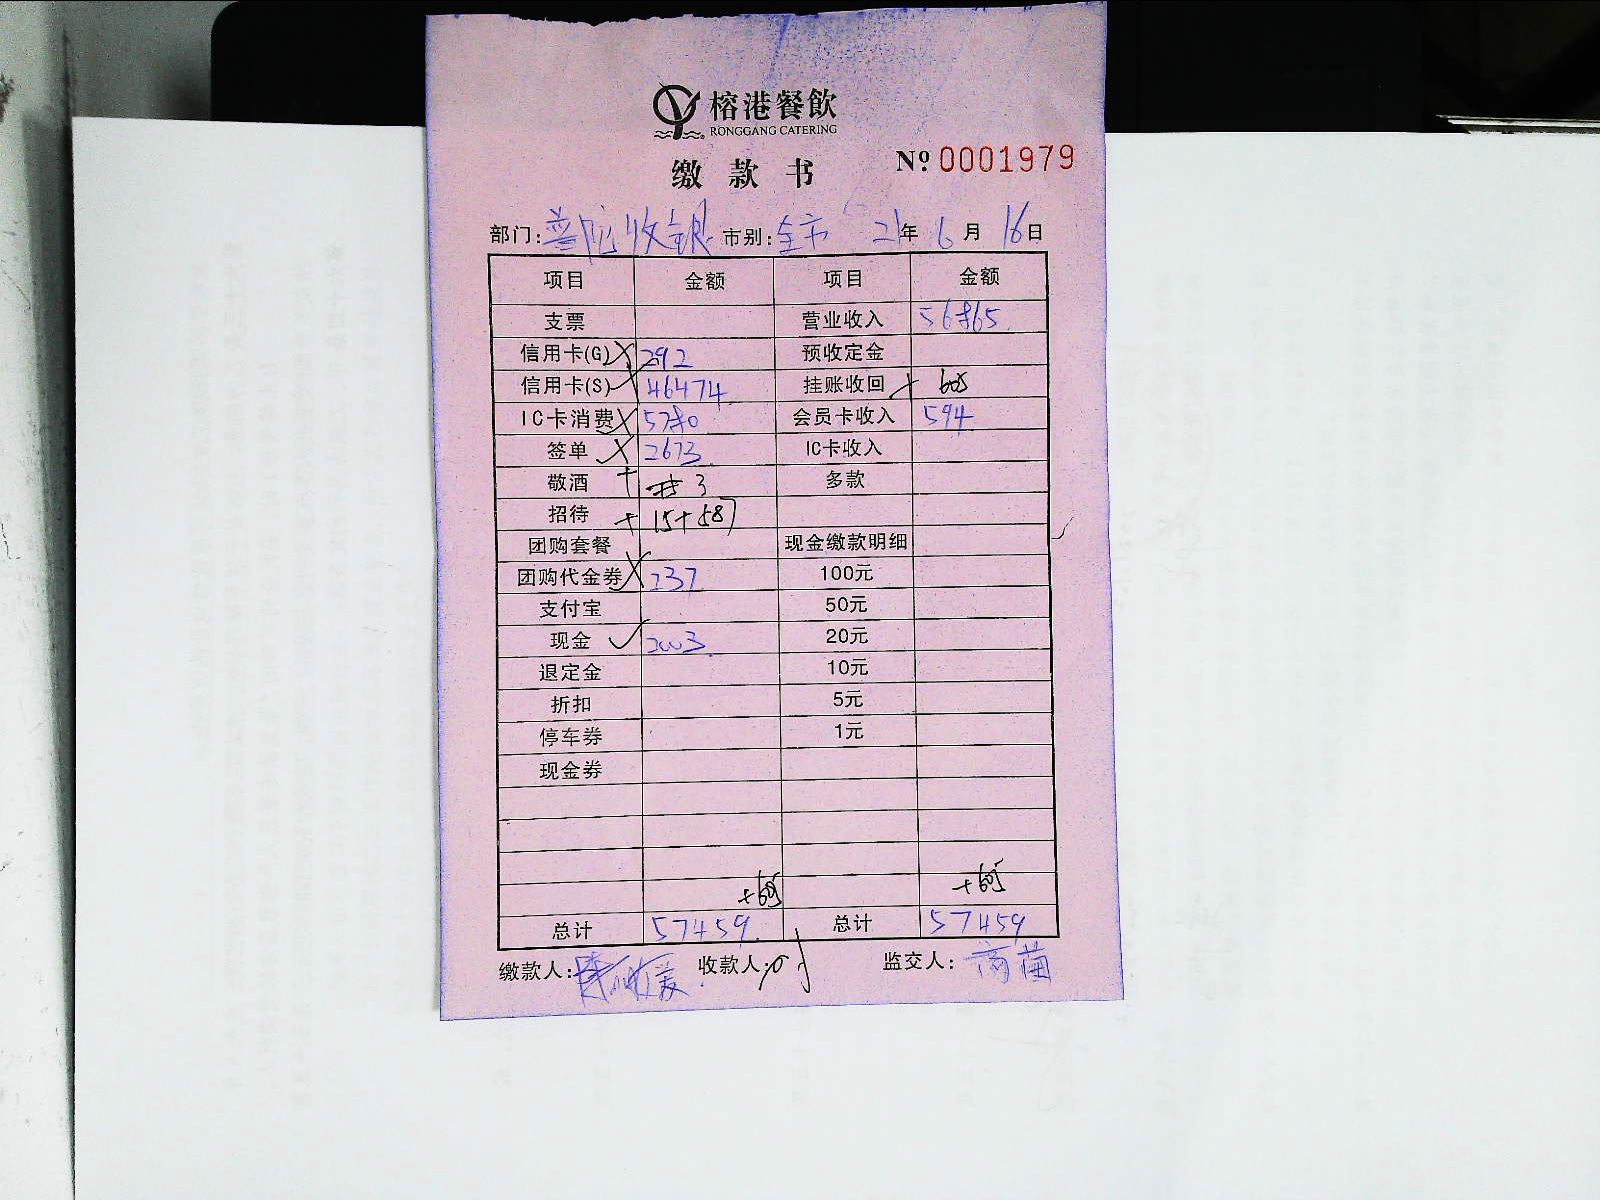 榕港餐飲
RONGGANG CATERING
缴款书 Nº 0001979
部门: 普陀收银 市别: 全市 21年 6月 16日
项目 金额 项目 金额
支票 营业收入 56865
信用卡(G) 292 预收定金
信用卡(S) 46474 挂账收回 + 605
IC卡消费 5780 会员卡收入 594
签单 2673 IC卡收入
敬酒 + 3 多款
招待 + 15+587
团购套餐 现金缴款明细
团购代金券 237 100元
支付宝 50元
现金 2003 20元
退定金 10元
折扣 5元
停车券 1元
现金券
+605 +605
总计 57459 总计 57459
缴款人: 收款人: 监交人: